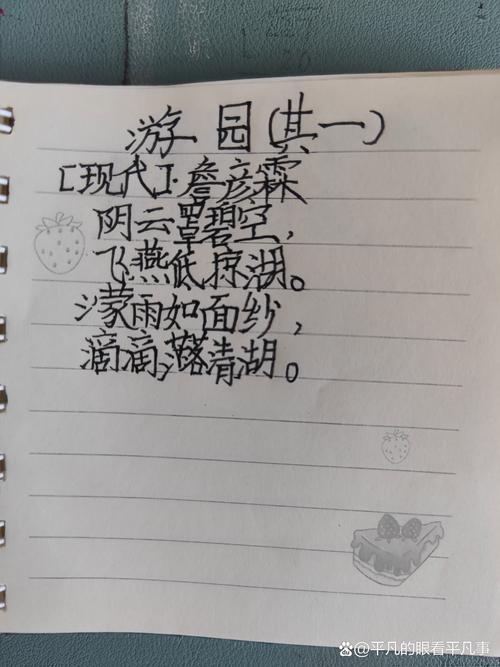 游园(其一)
[现代]·詹彦霖
阴云罩碧空,
飞燕低掠湖。
濛雨如面纱,
滴滴,落清湖。
@平凡的眼看平凡事